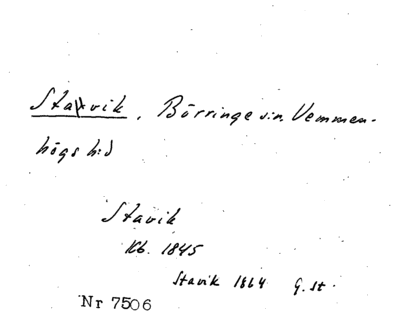 Stavik, Börringe sn. Vemmen-
högs hd
Stavik
Kb. 1845
Stavik 1864 G. st.
Nr 7506